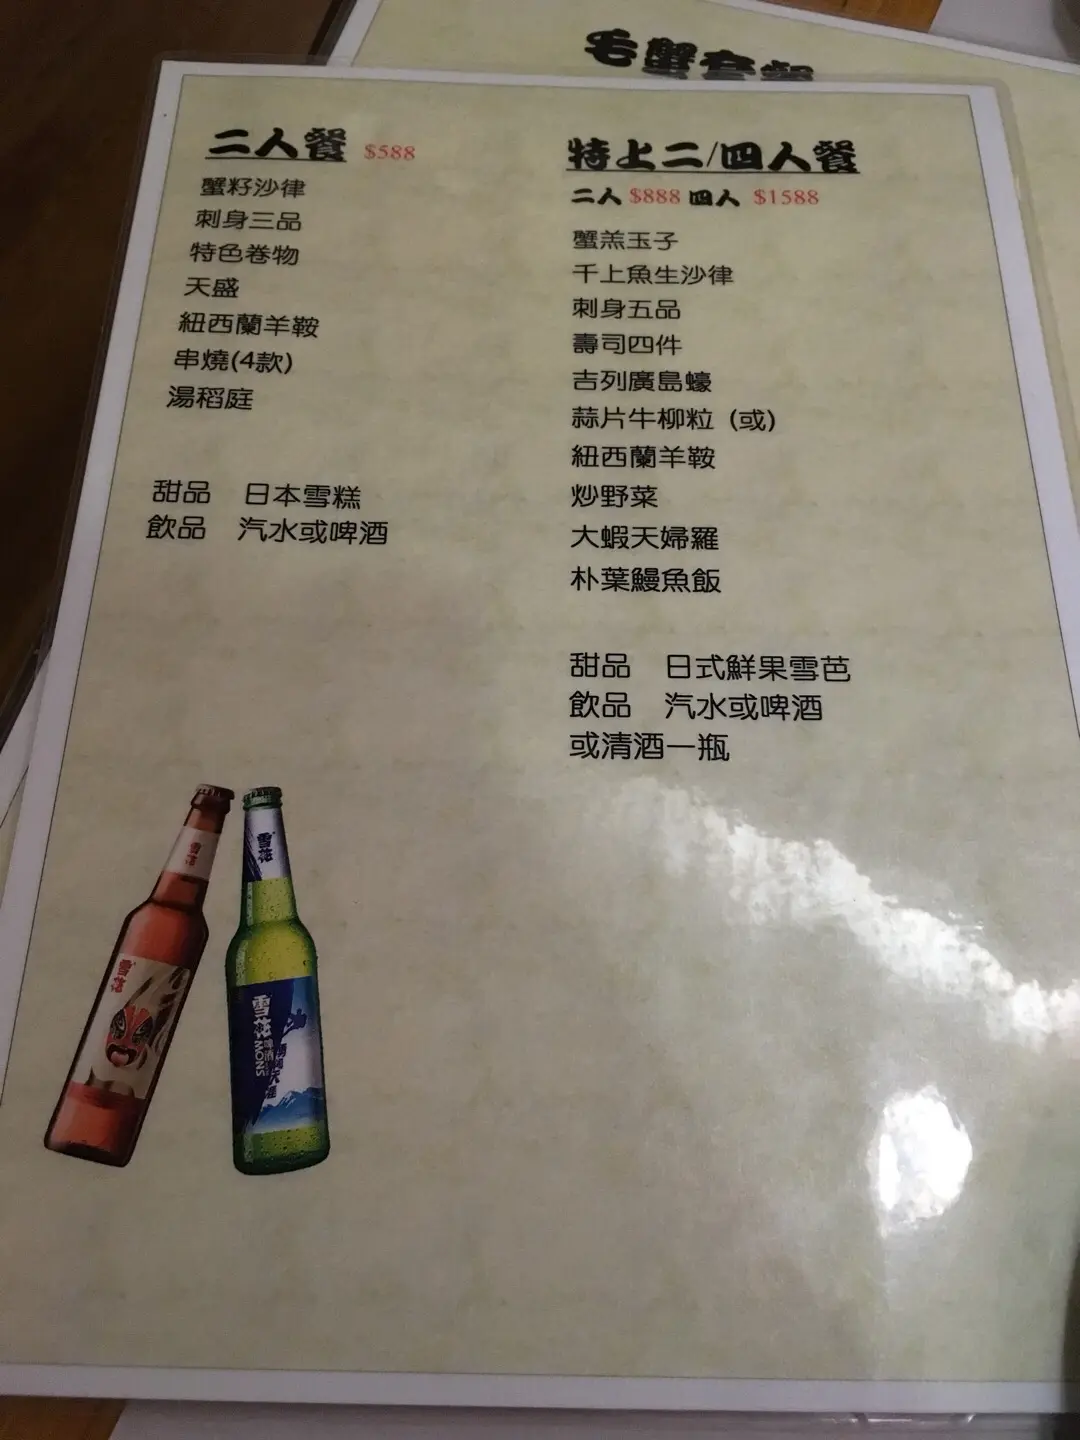 毛蟹套餐
二人餐 $588
蟹籽沙律
刺身三品
特色卷物
天盛
紐西蘭羊鞍
串燒(4款)
湯稻庭
甜品 日本雪糕
飲品 汽水或啤酒
特上二/四人餐
二人 $888 四人 $1588
蟹羔玉子
千上魚生沙律
刺身五品
壽司四件
吉列廣島蠔
蒜片牛柳粒 (或)
紐西蘭羊鞍
炒野菜
大蝦天婦羅
朴葉鰻魚飯
甜品 日式鮮果雪芭
飲品 汽水或啤酒
或清酒一瓶
雪花
雪花
雪花
雪花
啤酒
SNOW